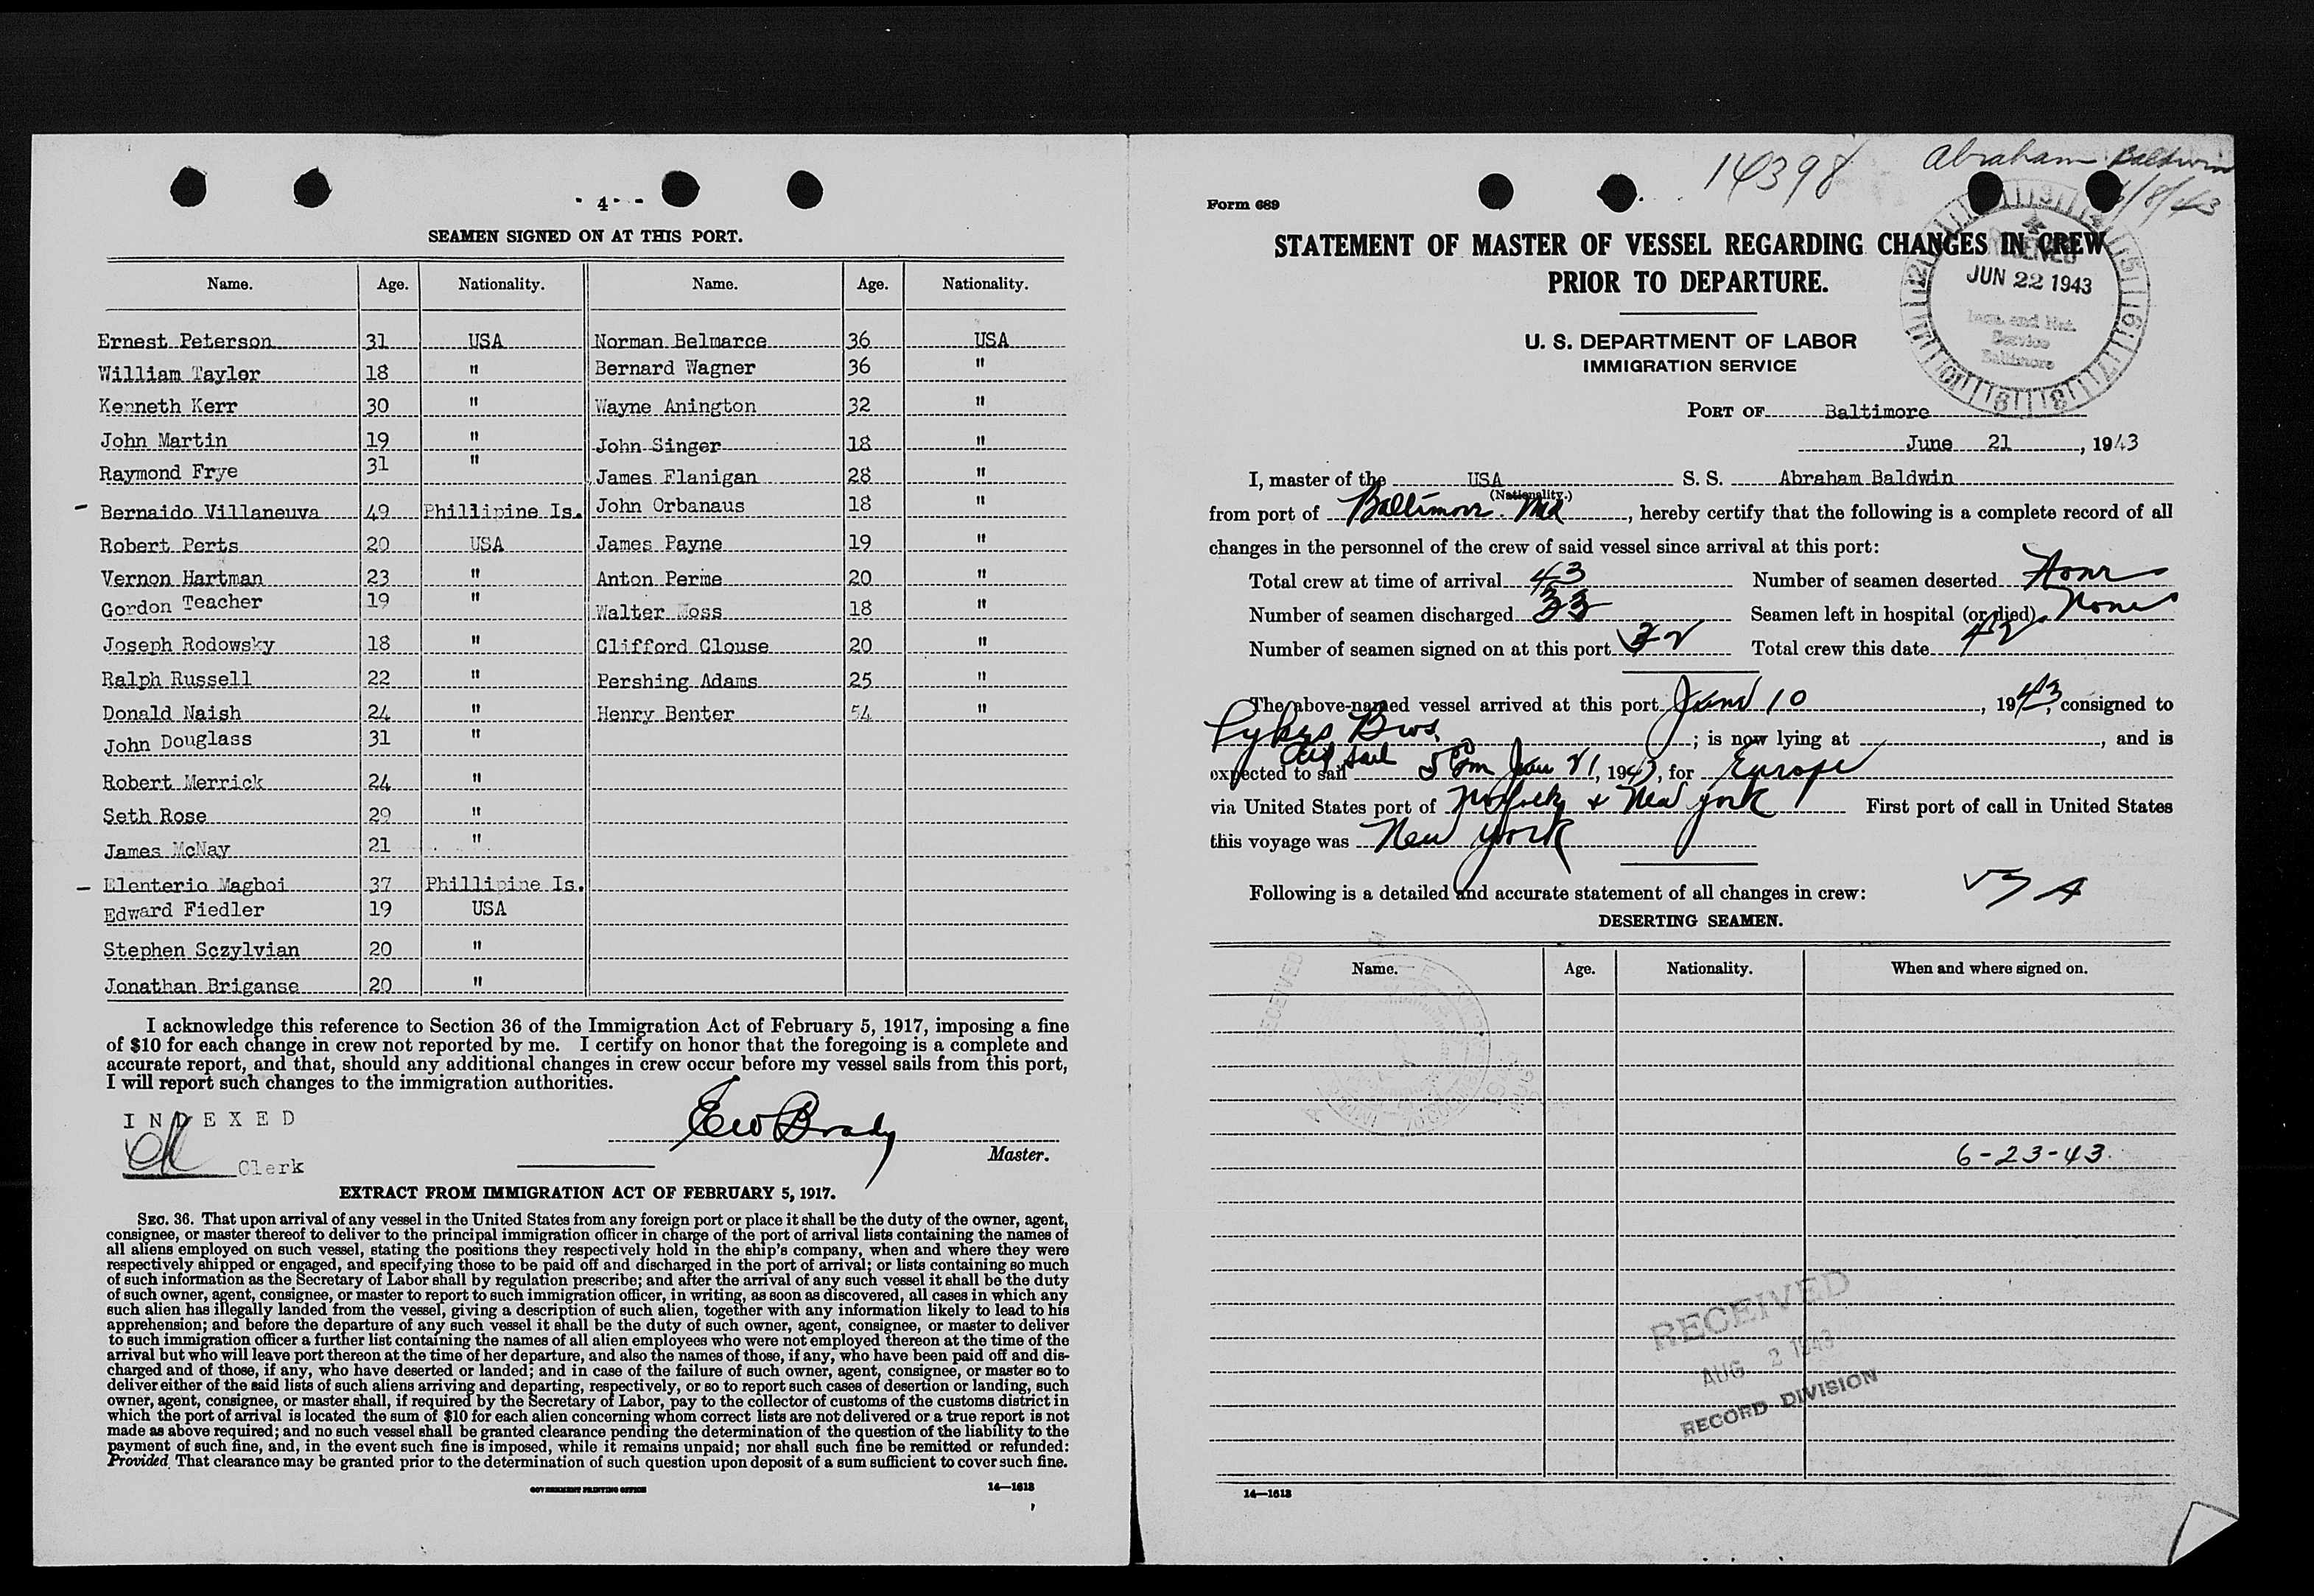 - 4 -
SEAMEN SIGNED ON AT THIS PORT.
Name. Age. Nationality. Name. Age. Nationality.
Ernest Peterson 31 USA Norman Belmarce 36 USA
William Taylor 18 " Bernard Wagner 36 "
Kenneth Kerr 30 " Wayne Anington 32 "
John Martin 19 " John Singer 18 "
Raymond Frye 31 " James Flanigan 28 "
- Bernaido Villaneuva 49 Phillipine Is. John Orbanaus 18 "
Robert Perts 20 USA James Payne 19 "
Vernon Hartman 23 " Anton Perme 20 "
Gordon Teacher 19 " Walter Moss 18 "
Joseph Rodowsky 18 " Clifford Clouse 20 "
Ralph Russell 22 " Pershing Adams 25 "
Donald Naish 24 " Henry Benter 54 "
John Douglass 31 "
Robert Merrick 24 "
Seth Rose 29 "
James McNay 21 "
- Elenterio Magboi 37 Phillipine Is.
Edward Fiedler 19 USA
Stephen Sczylvian 20 "
Jonathan Briganse 20 "
I acknowledge this reference to Section 36 of the Immigration Act of February 5, 1917, imposing a fine
of $10 for each change in crew not reported by me. I certify on honor that the foregoing is a complete and
accurate report, and that, should any additional changes in crew occur before my vessel sails from this port,
I will report such changes to the immigration authorities.
INDEXED
Clerk
EW Brady
Master.
EXTRACT FROM IMMIGRATION ACT OF FEBRUARY 5, 1917.
SEC. 36. That upon arrival of any vessel in the United States from any foreign port or place it shall be the duty of the owner, agent,
consignee, or master thereof to deliver to the principal immigration officer in charge of the port of arrival lists containing the names of
all aliens employed on such vessel, stating the positions they respectively hold in the ship's company, when and where they were
respectively shipped or engaged, and specifying those to be paid off and discharged in the port of arrival; or lists containing so much
of such information as the Secretary of Labor shall by regulation prescribe; and after the arrival of any such vessel it shall be the duty
of such owner, agent, consignee, or master to report to such immigration officer, in writing, as soon as discovered, all cases in which any
such alien has illegally landed from the vessel, giving a description of such alien, together with any information likely to lead to his
apprehension; and before the departure of any such vessel it shall be the duty of such owner, agent, consignee, or master to deliver
to such immigration officer a further list containing the names of all alien employees who were not employed thereon at the time of the
arrival but who will leave port thereon at the time of her departure, and also the names of those, if any, who have been paid off and dis-
charged and of those, if any, who have deserted or landed; and in case of the failure of such owner, agent, consignee, or master so to
deliver either of the said lists of such aliens arriving and departing, respectively, or so to report such cases of desertion or landing, such
owner, agent, consignee, or master shall, if required by the Secretary of Labor, pay to the collector of customs of the customs district in
which the port of arrival is located the sum of $10 for each alien concerning whom correct lists are not delivered or a true report is not
made as above required; and no such vessel shall be granted clearance pending the determination of the question of the liability to the
payment of such fine, and, in the event such fine is imposed, while it remains unpaid; nor shall such fine be remitted or refunded:
Provided, That clearance may be granted prior to the determination of such question upon deposit of a sum sufficient to cover such fine.
GOVERNMENT PRINTING OFFICE
14—1613
14398
Abraham Baldwin
6/8/43
Form 689
STATEMENT OF MASTER OF VESSEL REGARDING CHANGES IN CREW
PRIOR TO DEPARTURE.
RECEIVED
JUN 22 1943
Imm. and Nat.
Service
Baltimore
U. S. DEPARTMENT OF LABOR
IMMIGRATION SERVICE
PORT OF Baltimore
June 21, 1943
I, master of the USA S. S. Abraham Baldwin
(Nationality.)
from port of Baltimore. Md, hereby certify that the following is a complete record of all
changes in the personnel of the crew of said vessel since arrival at this port:
Total crew at time of arrival 43 Number of seamen deserted None
Number of seamen discharged 33 Seamen left in hospital (or died) None
Number of seamen signed on at this port 32 Total crew this date 42
The above-named vessel arrived at this port June 10, 1943, consigned to
Lykes Bros. ; is now lying at , and is
did sail
expected to sail 5 00 pm June 21, 1943, for Europe
via United States port of Norfolk & New York First port of call in United States
this voyage was New York
Following is a detailed and accurate statement of all changes in crew:
DESERTING SEAMEN.
Name. Age. Nationality. When and where signed on.
6-23-43.
RECEIVED
AUG 2 1943
RECORD DIVISION
14—1613